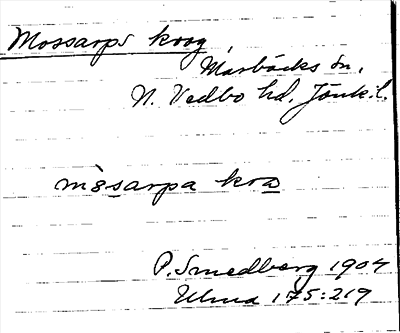 Mossarps krog,
Marbäcks sn,
N. Vedbo hd, Jönk.l.
mòsarpa kroa
P. Smedberg 1904
Ulma 175:219